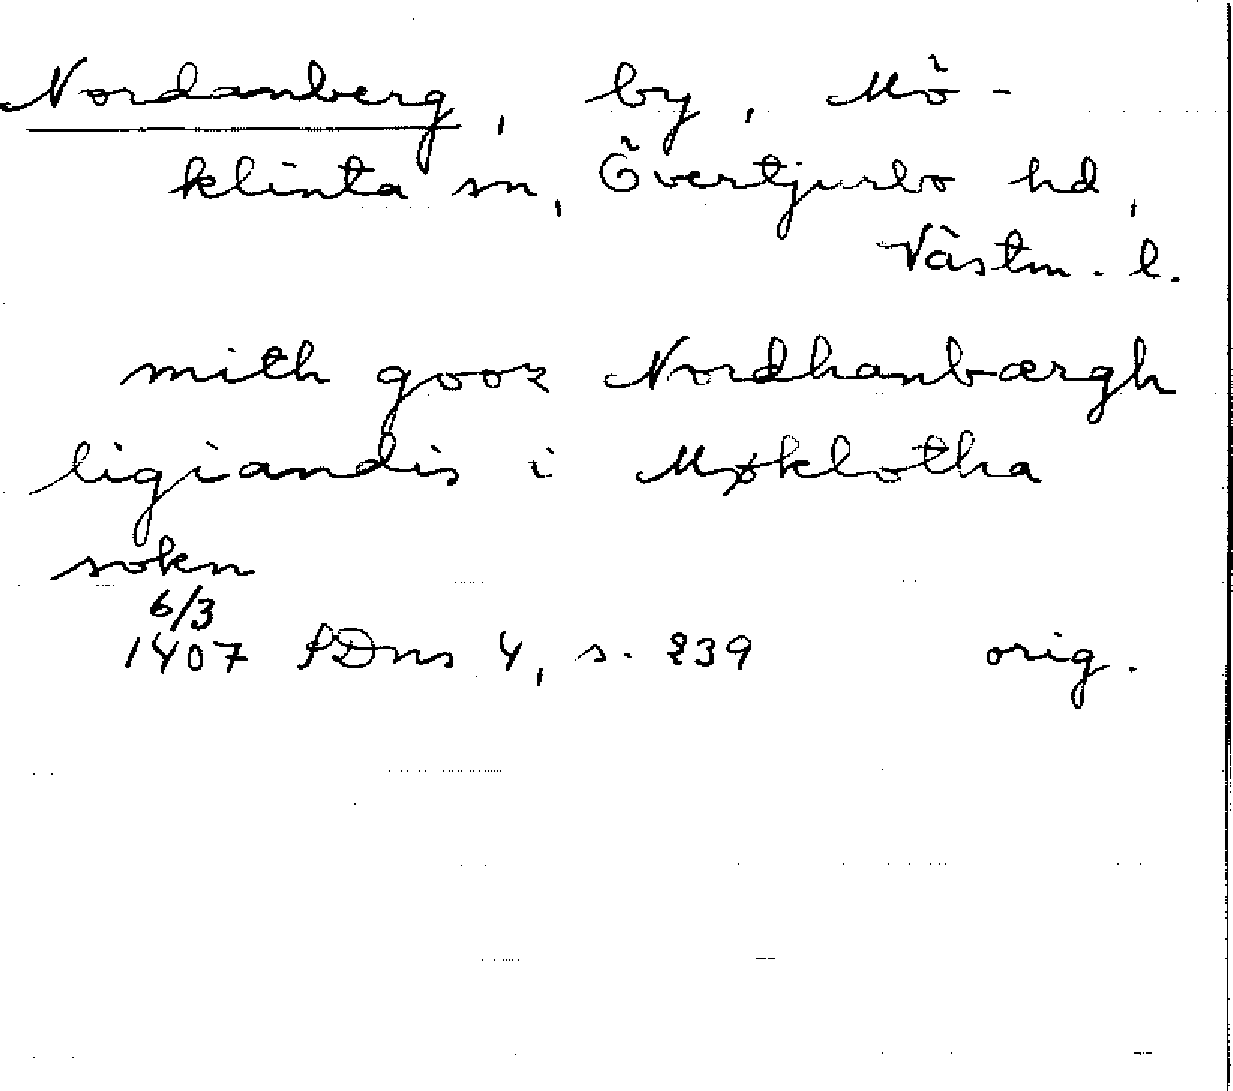 Nordanberg, by, Mö-
klinta sn, Övertjurbo hd,
Västm. l.
mith gooz Nordhanbærgh
ligiandis i Møklotha
sokn
6/3
1407 SDns 4, s. 239 orig.